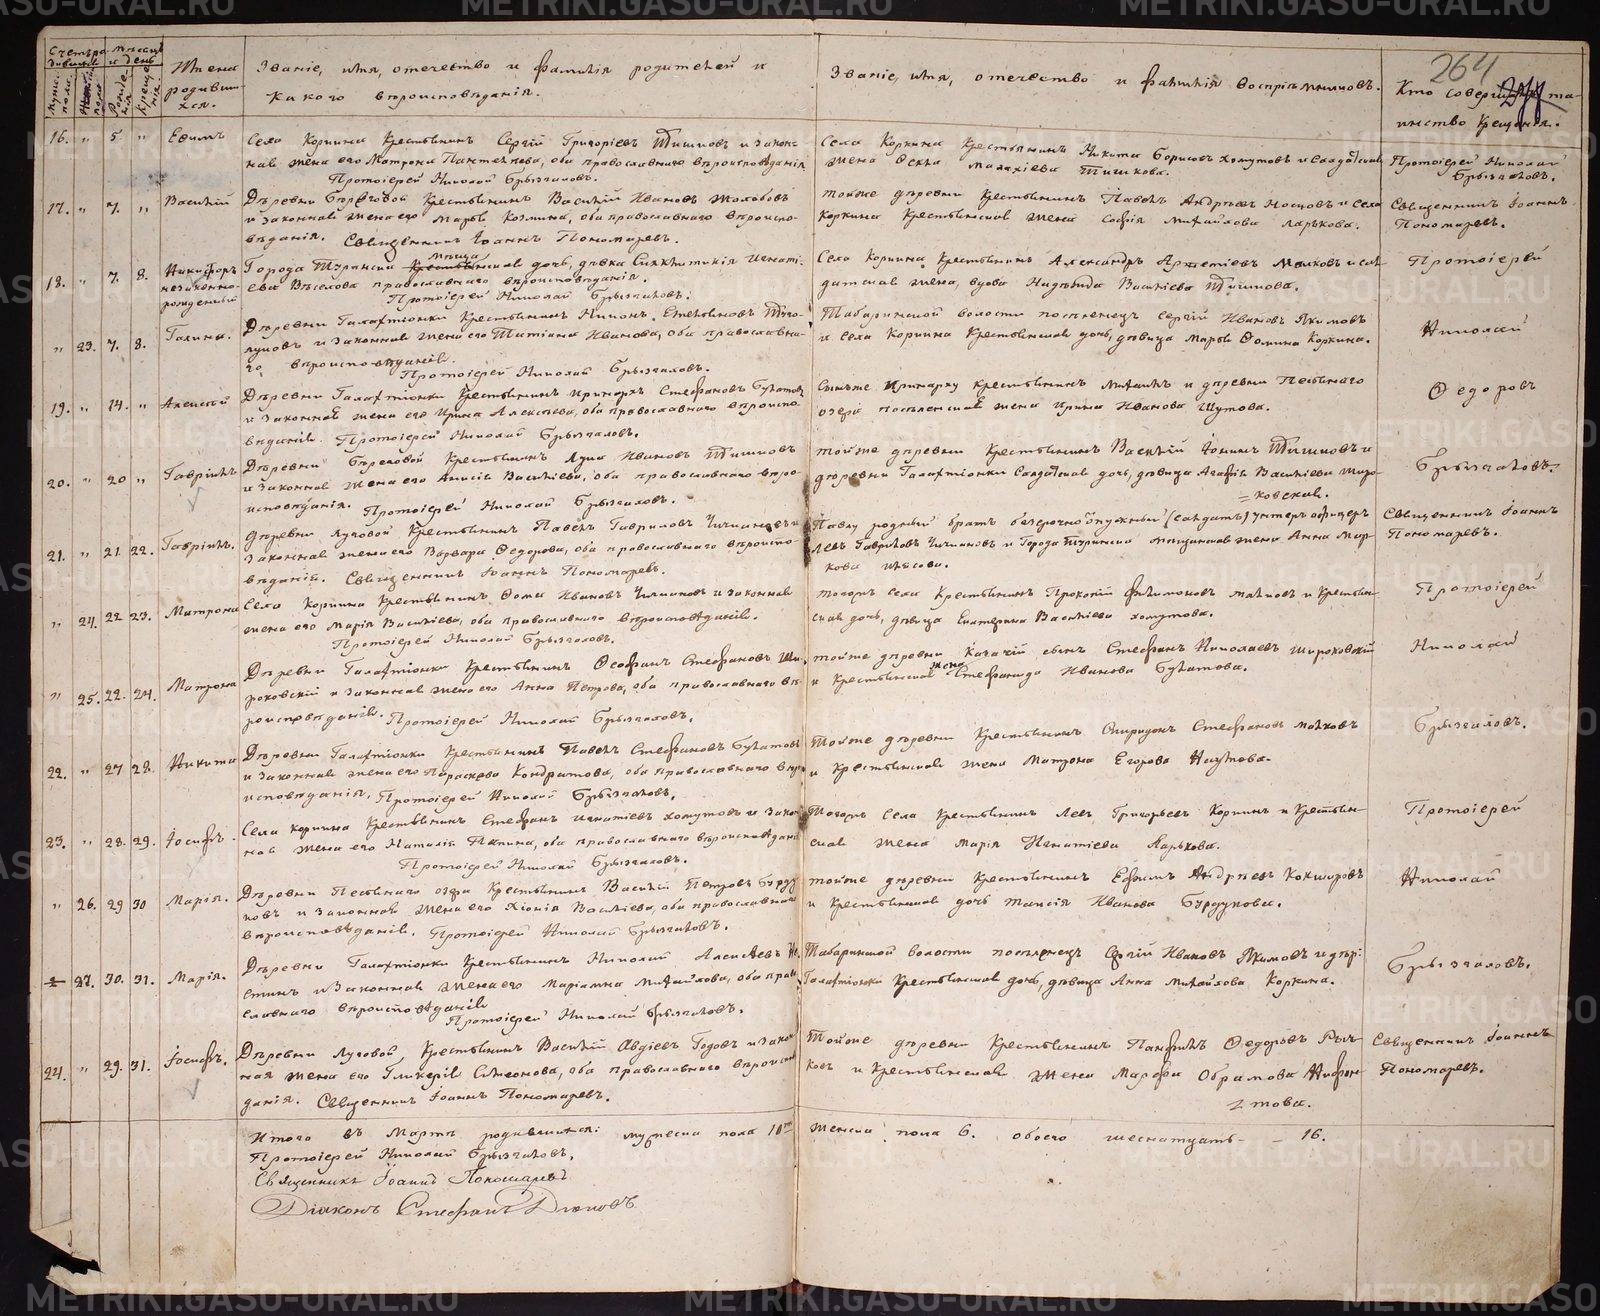 264
Счетъ ро-
дивших.
Мѣсяцъ
и день
Имена
родивши-
хся.
Званіе, имя, отечество и фамилія родителей и
какого вѣроисповѣданія.
Званіе, имя, отечество и фамилія воспріемниковъ.
Кто совершалъ та-
инство Крещенія.
16. " 5 " Ефимъ
Села Коркина Крестьянинъ Сергій Григоріевъ Шишковъ и закон-
ная жена его Матрона Пантелѣева, оба православнаго вѣроисповѣданія
Протоіерей Николай Брызгаловъ.
Села Коркина Крестьянинъ Никита Борисовъ Хомутовъ и Солдатская
жена Ѳекла Малахіева Шишкова.
Протоіерей Николай
Брызгаловъ.
17. " 7. " Василій
Деревни Береговой Крестьянинъ Василій Ивановъ Жолобовъ
и законная жена его Марья Козмина, оба православнаго вѣроиспо-
вѣданія. Священникъ Іоаннъ Пономаревъ.
тойже деревни Крестьянинъ Павелъ Андрѣевъ Носковъ и села
Коркина Крестьянская жена Софія Михайлова Ларькова.
Священникъ Іоаннъ
Пономаревъ.
18. " 7. 8. Никифоръ
незаконно-
рожденный
Города Туринска мѣщанская дочь, дѣвка Синклитикія Игнатi-
ева Вѣселова православнаго вѣроисповѣданія.
Протоіерей Николай Брызгаловъ.
Села Коркина Крестьянинъ Александръ Артеміевъ Малковъ и сол-
датская жена, вдова Надежда Васильева Шишкова.
Протоіерей
" 23. 7. 8. Галина.
Деревни Галактіонки Крестьянинъ Никонъ Стефановъ
и законная жена его Татіана Иванова, оба православна-
го вѣроисповѣданія.
Протоіерей Николай Брызгаловъ.
Табаринской волости поселенецъ Сергій Ивановъ Якимовъ
и села Коркина Крестьянская дочь, дѣвица Марья Ѳомина Коркина.
Николай
19. " 14. " Алексѣй
Деревни Галактіонки Крестьянинъ Иринархъ Стефановъ Булатовъ
и законная жена его Ирина Алексѣева, оба православнаго вѣроиспо-
вѣданія. Протоіерей Николай Брызгаловъ.
Сынъ же Иринарху Крестьянинъ Михаилъ и деревни Песьянаго
озера поселенская жена Ирина Иванова Шутова.
Федоровъ
20. " 20 " Гавріилъ
Деревни Береговой Крестьянинъ Лука Ивановъ Шишковъ
и законная жена его Анисія Васильева, оба православнаго вѣро-
исповѣданія. Протоіерей Николай Брызгаловъ.
тойже деревни Крестьянинъ Василій Іонинъ Шишковъ и
деревни Галактіонки Солдатская дочь, дѣвица Агафія Васильева Широ-
=ковская.
Брызгаловъ.
21. " 21. 22. Гавріилъ.
Деревни Луговой Крестьянинъ Павелъ Гавриловъ Чичкановъ и
законная жена его Варвара Федорова, оба православнаго вѣроиспо-
вѣданія. Священникъ Іоаннъ Пономаревъ.
Павлу родный братъ безсрочно отпускный (солдатъ) унтеръ офицеръ
Левъ Гавриловъ Чичкановъ и Города Туринска мѣщанская жена Анна Мар-
кова
Священникъ Іоаннъ
Пономаревъ.
" 24. 22 23. Матрона
Села Коркина Крестьянинъ Ѳома Ивановъ и законная
жена его Марія Васильева, оба православнаго вѣроисповѣданія.
Протоіерей Николай Брызгаловъ.
тогожъ села Крестьянинъ Прокопій Филимоновъ Малковъ и Крестьян-
ская дочь, дѣвица Екатерина Васильева Хомутова.
Протоіерей
" 25. 22. 24. Матрона
Деревни Галактіонки Крестьянинъ Ѳеофанъ Стефановъ Ши-
роковскій и законная жена его Анна Петрова, оба православнаго вѣ-
роисповѣданія. Протоіерей Николай Брызгаловъ.
тойже деревни Казачій сынъ Стефанъ Николаевъ Широковскій
и Крестьянская жена Стефанида Иванова Булатова.
Николай
22. " 27 28. Никита
Деревни Галактіонки Крестьянинъ Павелъ Стефановъ Булатовъ
и законная жена его Параскева Кондратова, оба православнаго вѣро-
исповѣданія. Протоіерей Николай Брызгаловъ.
Тойже деревни Крестьянинъ Спиридонъ Стефановъ Малковъ
и Крестьянская жена Матрона Егорова Наумова.
Брызгаловъ.
23. " 28. 29. Іосифъ.
Села Коркина Крестьянинъ Стефанъ Игнатіевъ Хомутовъ и закон-
ная жена его Наталія, оба православнаго вѣроисповѣданія
Протоіерей Николай Брызгаловъ.
Тогожъ села Крестьянинъ Левъ Григорьевъ Коркинъ и Крестьян-
ская жена Марія Игнатіева Ларькова.
Протоіерей
" 26. 29 30 Марія.
Деревни Песьянаго озера Крестьянинъ Василій Петровъ Бурду-
ковъ и законная жена его Хіонія Васильева, оба православнаго
вѣроисповѣданія. Протоіерей Николай Брызгаловъ.
тойже деревни Крестьянинъ Ефимъ Андрѣевъ Кокшаровъ
и Крестьянская дочь Таисія Иванова Бурдукова.
Николай
" 27. 30. 31. Марія.
Деревни Галактіонки Крестьянинъ Николай Алексѣевъ
и законная жена его Маріамна Михайлова, оба право-
славнаго вѣроисповѣданія
Протоіерей Николай Брызгаловъ.
Табаринской волости поселенецъ Сергій Ивановъ Якимовъ и дер:
Галактіонки Крестьянская дочь, дѣвица Анна Михайлова Коркина.
Брызгаловъ.
24. " 29. 31. Іосифъ.
Деревни Луговой Крестьянинъ Василій Авдіевъ Годовъ и закон-
ная жена его Гликерія Симеонова, оба православнаго вѣроиспо-
вѣданія. Священникъ Іоаннъ Пономаревъ.
Тойже деревни Крестьянинъ Панфилъ Ѳедоровъ Рыч-
ковъ и Крестьянская жена Марфа Обрамова
Священникъ Іоаннъ
Пономаревъ.
Итого въ Мартѣ родившихся: мужеска пола 10ть
женска пола 6. обоего шеснатцать — 16.
Протоіерей Николай Брызгаловъ.
Священникъ Іоаннъ Пономаревъ
Діаконъ Стефанъ